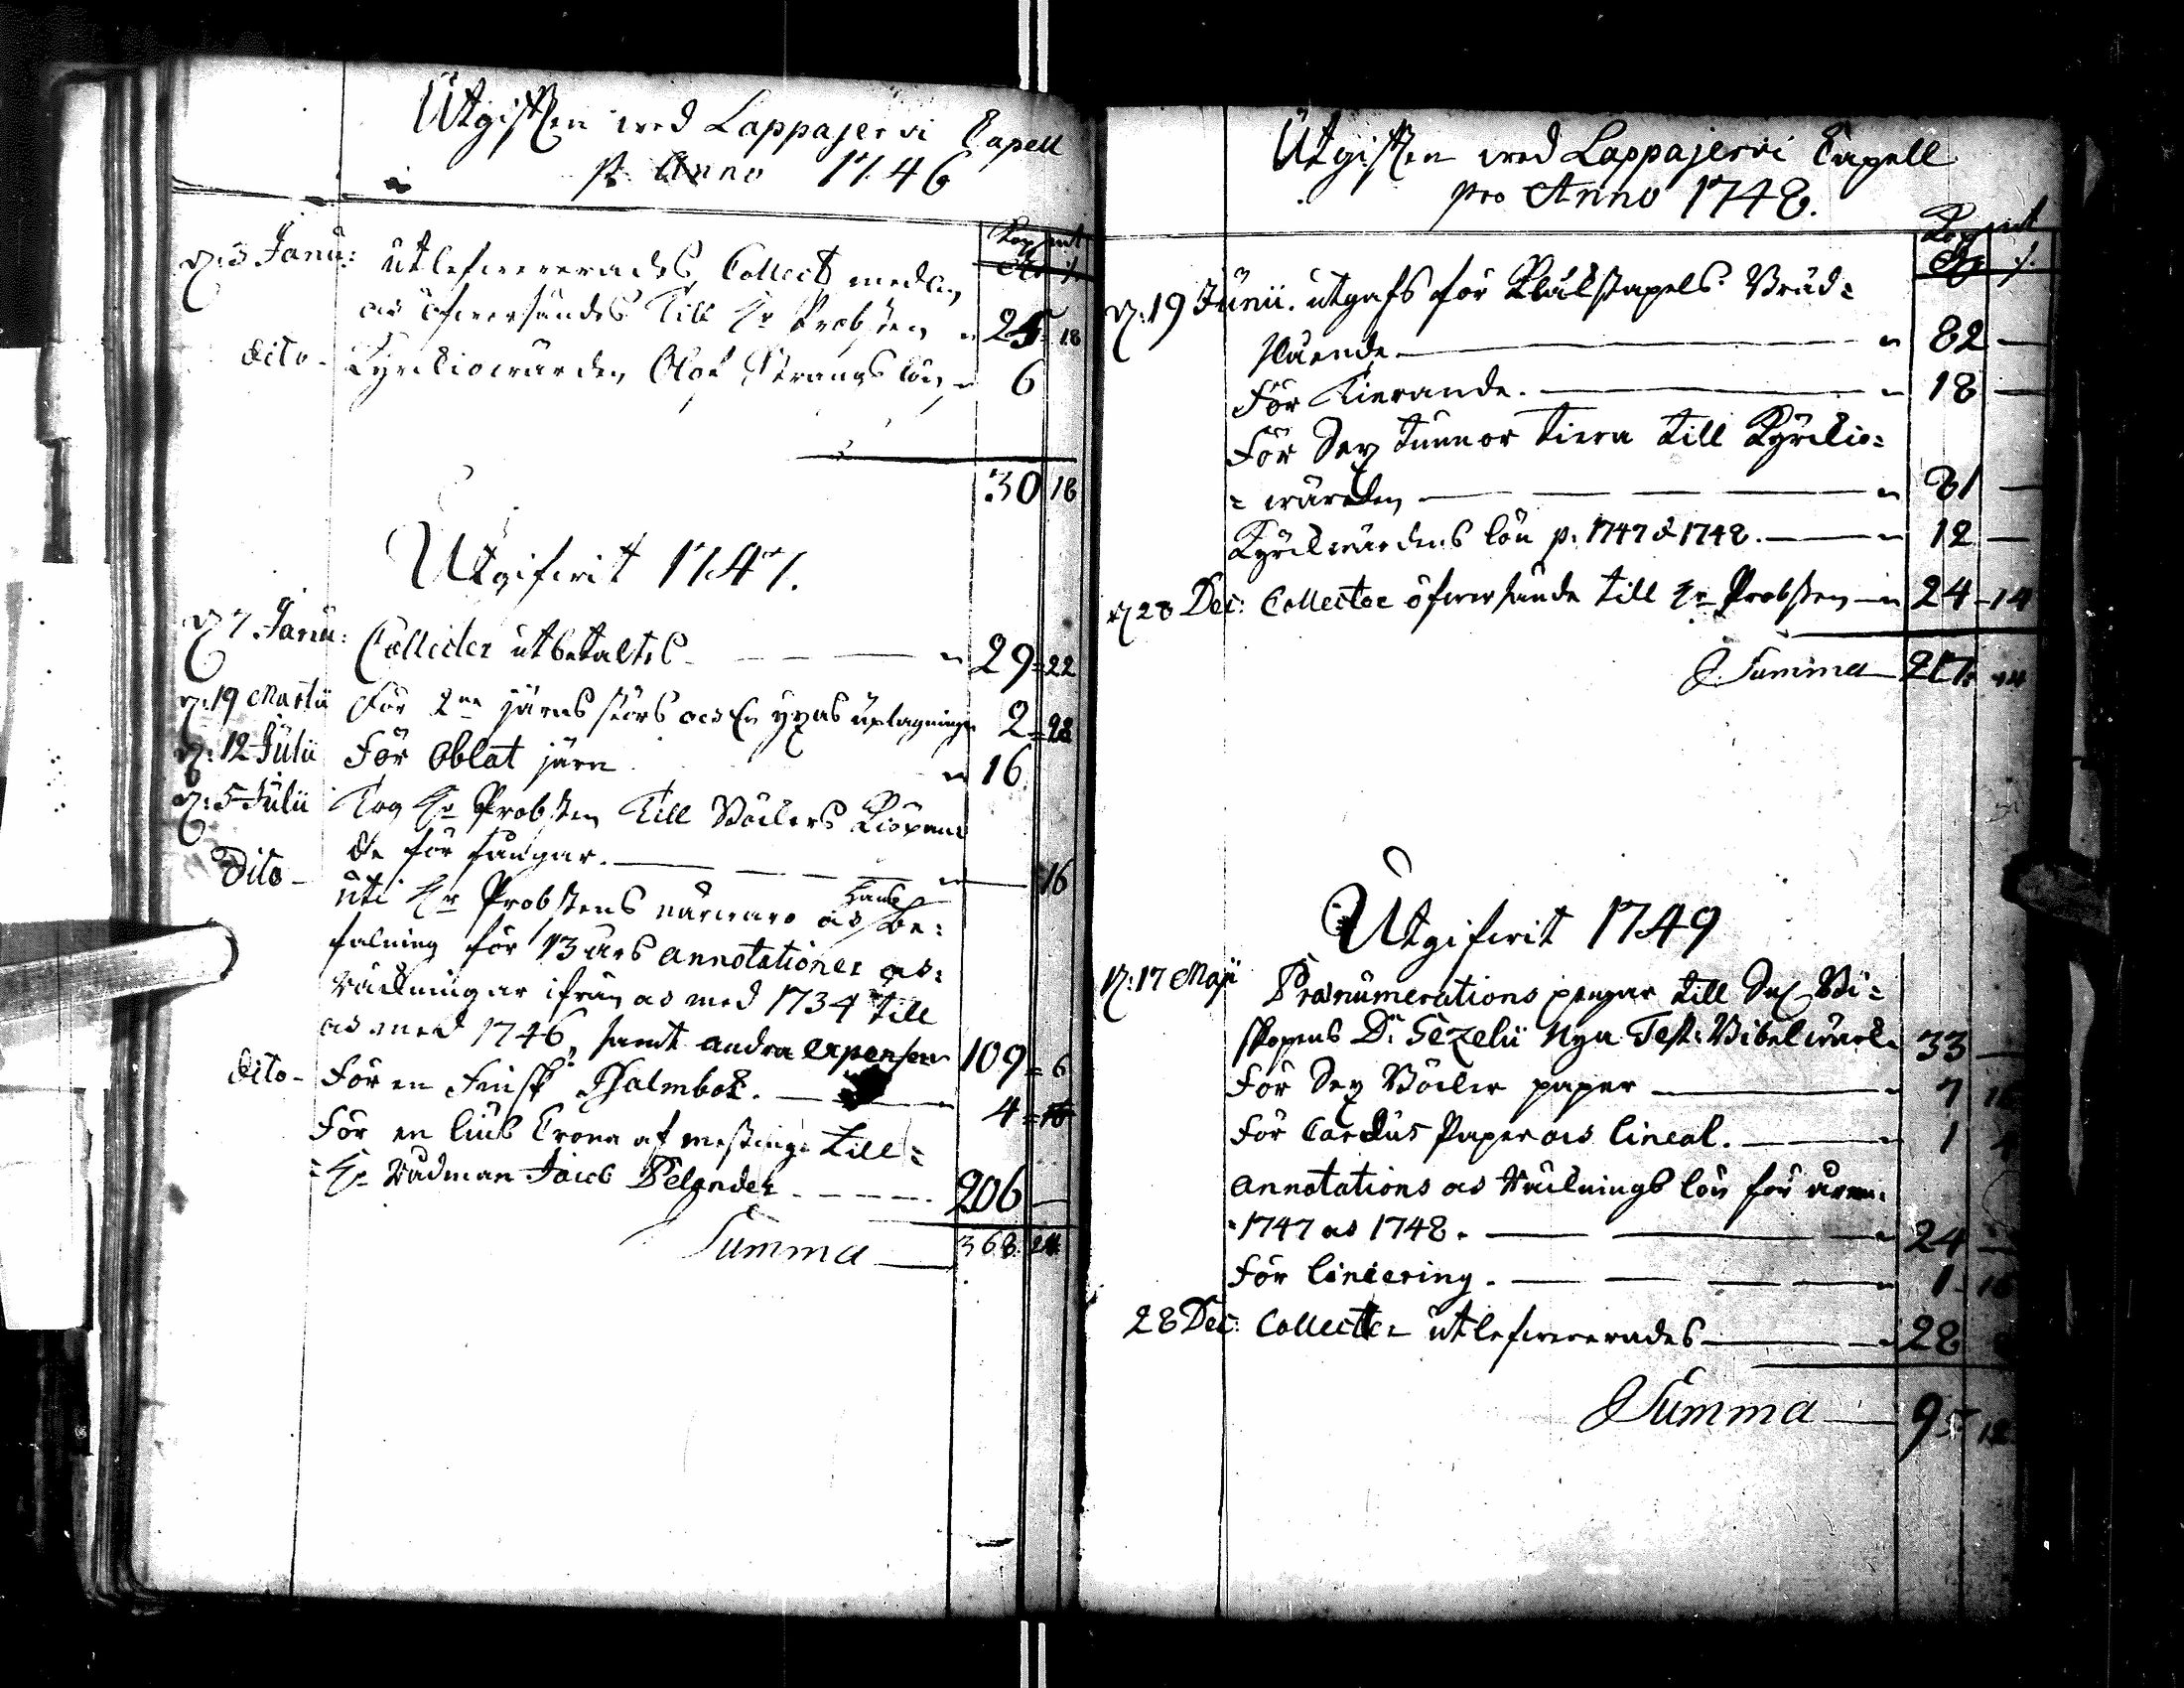 Utgiften wed Lappajerwi Capell
pr Anno 1746
Kop mt
d: 3 Janu: utlefwererades Collect medlen
och öfwersändes till Hr Probsten 24 18
dito Kyrkiowärden Olof Strangs lön 6
30 18
Utgifwit 1747.
d 7 Janu: Collecter utbetaltes 29 = 22
d: 19 Martii För 2ne järns störs och en yxas uplagning 2 =
d: 12 Julii För Oblat järn 16
d: 5 Julii Tog Hr Probsten till Böckers Kiöpan
de för fångar. 16
Dito uti Hr Probstens närwaro och hans be:
falning för 13 års annotationer och
räkningar ifrån och med 1734 till
och med 1746, samt andra expenser 109 = 6
dito För en Finsk Psalmbok. 4 = 16
För en lius Crona af messing till
Hr Rådman Jacob Pelander 206
Summa 368 24
Utgiften wed Lappajerwi Capell
pro Anno 1748.
Kop mt
d: 19 Junii. utgafs för Klåkstapels Bräd:
slående 82
För Tierande. 18
För Sex tunnor tiera till Kyrckio:
= wärden 81
Kyrckwärdens lön p. 1747 & 1748. 12
d 28 Dec: Collecter öfwersände till Hr Probsten 24 14
Summa 217 14
Utgifwit 1749
d: 17 Maji Prænumerations pengar till Sal. Bi:
skopens D. Gezelii Nya Test: Bibelwärk 33
För Sex Böcker paper 7 16
För Cardus Paper och Lineal. 1 4
Annotations och Räknings lön för åren
1747 och 1748. 24
För liniering. 1 16
28 Dec: Collecter utlefwererades 28
Summa 95 12